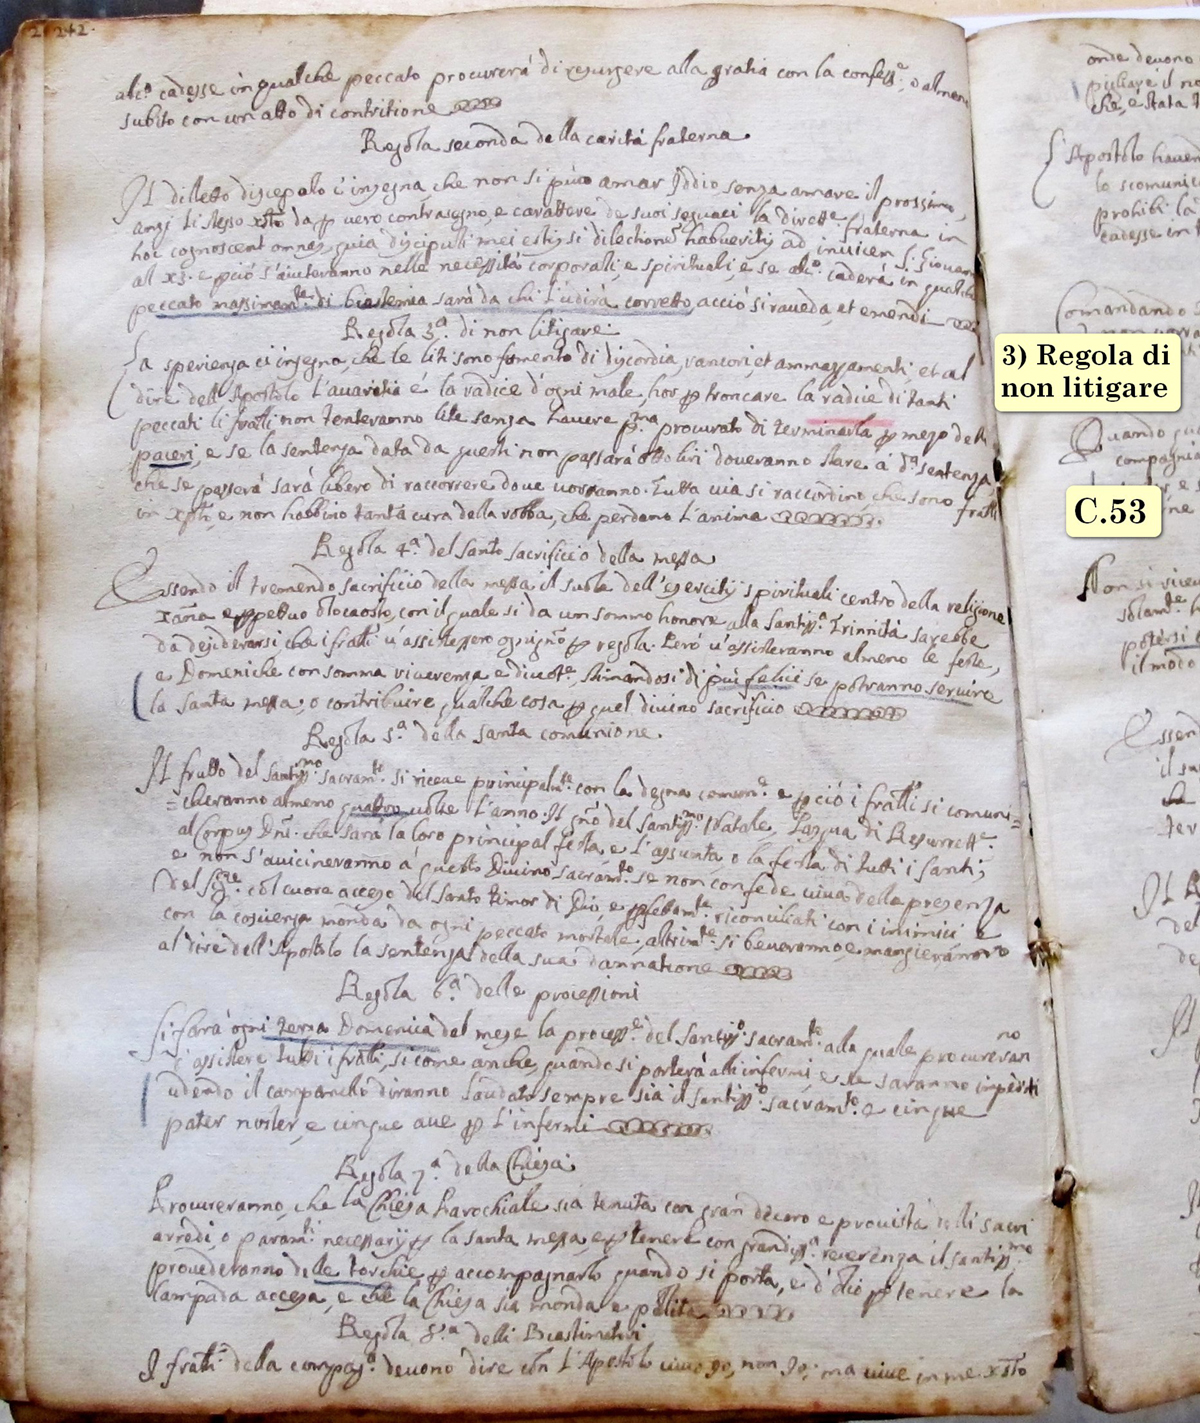 242.
alc.º cadesse in qualche peccato procurerà di resurgere alla gratia con la confess.e, o almen
subito con un atto di contritione
Regola seconda della carità fraterna
Il diletto discepolo c'insegna che non si può amar Iddio senza amare il prossimo,
anzi l'istesso xsto da p vero contrasegno, e carattere de suoi seguaci la dilett.e fraterna in
hoc cognoscent omnes quia discipuli mei estis si dilectione habueritis ad invicem S. Giovan
al x3. e pciò s'aiuteranno nelle necessità corporali, e spirituali, e se alc.º caderà in qualche
peccato massimam.te di biastemia sarà da chi l'udirà corretto, acciò si raveda, et emendi
Regola 3.a di non litigare
La sperienza ci insegna, che le liti sono fomento di discordia, rancori, et ammazzamenti, et al
dire dell'Apostolo l'avaritia è la radice d'ogni male, hor p troncare la radice di tanti
peccati li fratti non tenteranno lite senza havere p.ma procurato di terminarla p mezo delli
pacieri, e se la sentenza data da questi non passarà otto liri doveranno stare à d.a sentenza,
che se passerà sarà libero di raccorrere dove vorranno. Tutta via si raccordino, che sono fratti
in xpto, e non habbino tanta cura della robba, che perdano l'anima
Regola 4.a del Santo sacrificio della messa
Essendo il tremendo sacrificio della messa il sole dell'esercitij spirituali centro della religione
xana e ppetuo olocaosto, con il quale si da un sommo honore alla Santiss.a Trinnità sarebbe
da desiderarsi che i fratti v'assistessero ogni gno p regola. Però v'assisteranno almeno le feste,
e Domeniche con somma riverenza e divot.e, stimandosi di più felici se potranno servire
la santa messa, o contribuire qualche cosa p quel divino sacrificio
Regola 5.a della santa comunione.
Il frutto del Santiss.mo sacram.to si riceve principalm.te con la degna comun.e e pciò i fratti si comuni=
=cheranno almeno quattro volte l'anno. Il gno del Santiss.mo Natale, Pasqua di Resurrett.e
al Corpus Dni. che sarà la loro principal festa, e l'assunta, o la festa di tutti i Santi;
e non s'avicineranno a questo Divino sacram.to se non con fede viva della presenza
del Sig.re, col cuore acceso del santo timor di Dio, e pfettam.te riconciliati con i inimici e
con la coscienza monda da ogni peccato mortale, altrim.te si beveranno, e mangieranno
al dire dell'Apostolo la sentenza della sua dannatione
Regola 6.a delle processioni
Si farrà ogni terza Domenica del mese la process.e del Santiss.o sacram.to alla quale procureran
no
d'assistere tutti i fratti, si come anche, quando si porterà alli infermi, e se saranno impediti
udendo il campanello diranno laudato sempre sia il Santiss.o sacram.to e cinque
pater noster, e cinque ave p l'infermi
Regola 7.a della Chiesa
Procureranno, che la Chiesa Parochiale sia tenuta con gran decoro e provista delli sacri
arredi, o param.ti necessarij p la santa messa, e p tenere con grandiss.a reverenza il santiss.mo
provederanno delle torchie p accompagnarlo quando si porta, e d'olio p tenere la
lampada accesa, e che la Chiesa sia monda e polita
Regola 8.a delli Biastimatori
I fratti della compag.a devono dire con l'Apostolo vivo go, non go; ma vive in me xsto
onde devono
pigliare il no
che, è stata t
l'Apostolo haven
lo scomunic
prohibi la
cadesse in t
Comandando
3) Regola di
non litigare
Quando
compagnia
C.53
Non si ricev
solam.te
potersi
il modo
Essend